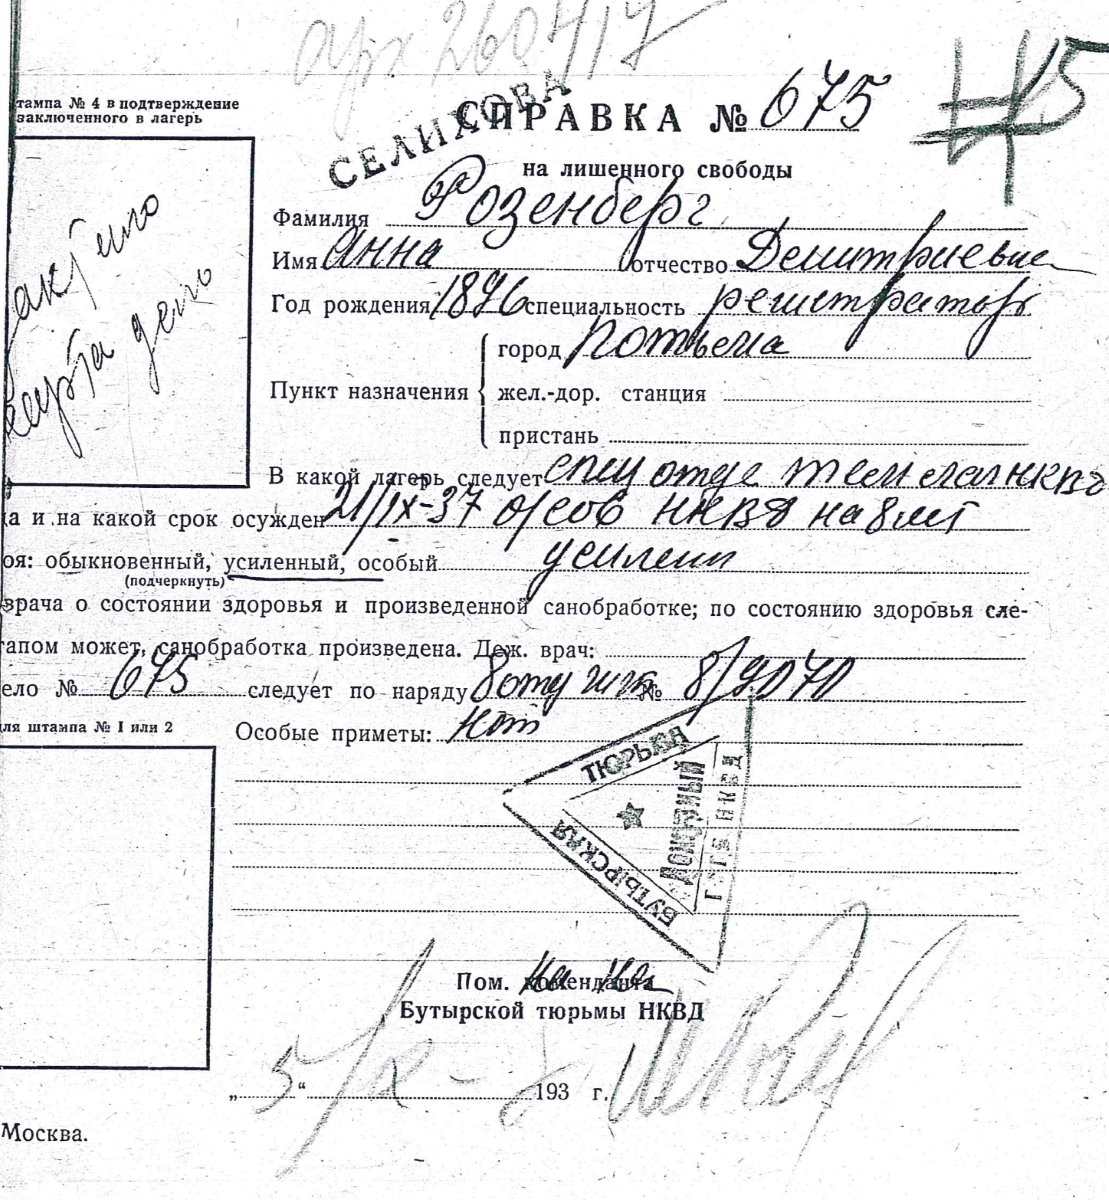 арх 260717
тампа № 4 в подтверждение
заключенного в лагерь
СЕЛИХОВА
СПРАВКА № 675
на лишенного свободы
Фамилия Розенберг
Имя Анна отчество Дмитриевна
Год рождения 1896 специальность регистратор
Пункт назначения
город Потьма
жел.-дор. станция
пристань
карта дело
В какой лагерь следует спец отде темлаг НКВД
да и на какой срок осужден 21/IX-37 ос сов НКВД на 8 лет
оя: обыкновенный, усиленный, особый усилен
(подчеркнуть)
врача о состоянии здоровья и произведенной санобработке; по состоянию здоровья сле-
тапом может, санобработка произведена. Деж. врач:
ело № 675 следует по наряду 8 отд № 8/9070
ля штампа № 1 или 2
Особые приметы: нет
ТЮРЬМА
БУТЫРСКАЯ
НКВД
Пом. коменданта
Бутырской тюрьмы НКВД
„ 5 “ X 193 г.
Москва.